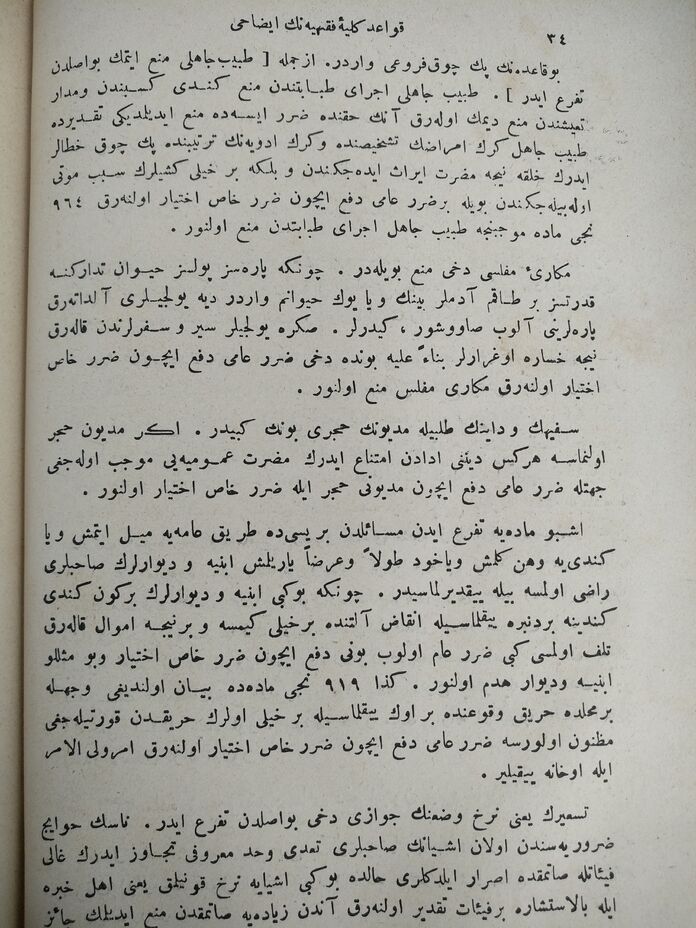 ٣٤
قواعد كلیهٔ فقهیه نك ایضاحی
بوقاعده‌نك پك چوق فروعی واردر . ازجمله [ طبیب جاهلی منع ایتمك بواصلدن
تفرع ایدر ] . طبیب جاهلی اجرای طبابتدن منع كندی كسبندن ومدار
تعیشندن منع دیمك اوله‌رق آنك حقنده ضرر ایسه‌ده منع ایدیلدیكی تقدیرده
طبیب جاهل كرك امراضك تشخیصنده وكرك ادویه‌نك ترتیبنده پك چوق خطالر
ایدرك خلقه نیجه مضرت ایراث ایده‌جكندن و بلكه بر خیلی كشیلرك سبب موتی
اوله‌بیله‌جكندن بویله برضرر عامی دفع ایچون ضرر خاص اختیار اولنه‌رق ٩٦٤
نجی ماده موجبنجه طبیب جاهل اجرای طبابتدن منع اولنور .
مكاریٔ مفلسی دخی منع بویله‌در . چونكه پاره‌سز پولسز حیوان تداركنه
قدرتسز بر طاقم آدملر بینك ویا یوك حیوانم واردر دیه یولجیلری آلداته‌رق
پاره‌لرینی آلوب صاووشور ، كیدرلر . صكره یولجیلر سیر و سفرلرندن قاله‌رق
نیجه خساره اوغرارلر بناءً علیه بونده دخی ضرر عامی دفع ایچون ضرر خاص
اختیار اولنه‌رق مكاری مفلس منع اولنور .
سفیهك و داینك طلبیله مدیونك حجری بونك كبیدر . اكر مدیون حجر
اولنماسه هركس دیننی ادادن امتناع ایدرك مضرت عمومیه‌یی موجب اوله‌جغی
جهتله ضرر عامی دفع ایچون مدیونی حجر ایله ضرر خاص اختیار اولنور .
اشبو ماده‌یه تفرع ایدن مسائلدن بریسی‌ده طریق عامه‌یه میل ایتمش ویا
كندی‌یه وهن كلمش ویاخود طولاً وعرضاً یاریلمش ابنیه و دیوارلرك صاحبلری
راضی اولمسه بیله ییقدیرلماسیدر . چونكه بوكبی ابنیه و دیوارلرك بركون كندی
كندینه بردنبره ییقلماسیله انقاض آلتنده برخیلی كیمسه و برنیجه اموال قاله‌رق
تلف اولمسی كبی ضرر عام اولوب بونی دفع ایچون ضرر خاص اختیار وبو مثللو
ابنیه ودیوار هدم اولنور . كذا ٩١٩ نجی ماده‌ده بیان اولندیغی وجهله
برمحلده حریق وقوعنده بر اوك ییقلماسیله بر خیلی اولرك حریقدن قورتیله‌جغی
مظنون اولورسه ضرر عامی دفع ایچون ضرر خاص اختیار اولنه‌رق امر ولی الامر
ایله اوخانه ییقیلیر .
تسعیرك یعنی نرخ وضعنك جوازی دخی بواصلدن تفرع ایدر . ناسك حوایج
ضروریه‌سندن اولان اشیانك صاحبلری تعدی وحد معروفی تجاوز ایدرك غالی
فیئاتله صاتمقده اصرار ایلدكلری حالده بوكبی اشیایه نرخ قونیلق یعنی اهل خبره
ایله بالاستشاره برفیئات تقدیر اولنه‌رق آندن زیاده‌یه صاتمقدن منع ایدیلك جائز